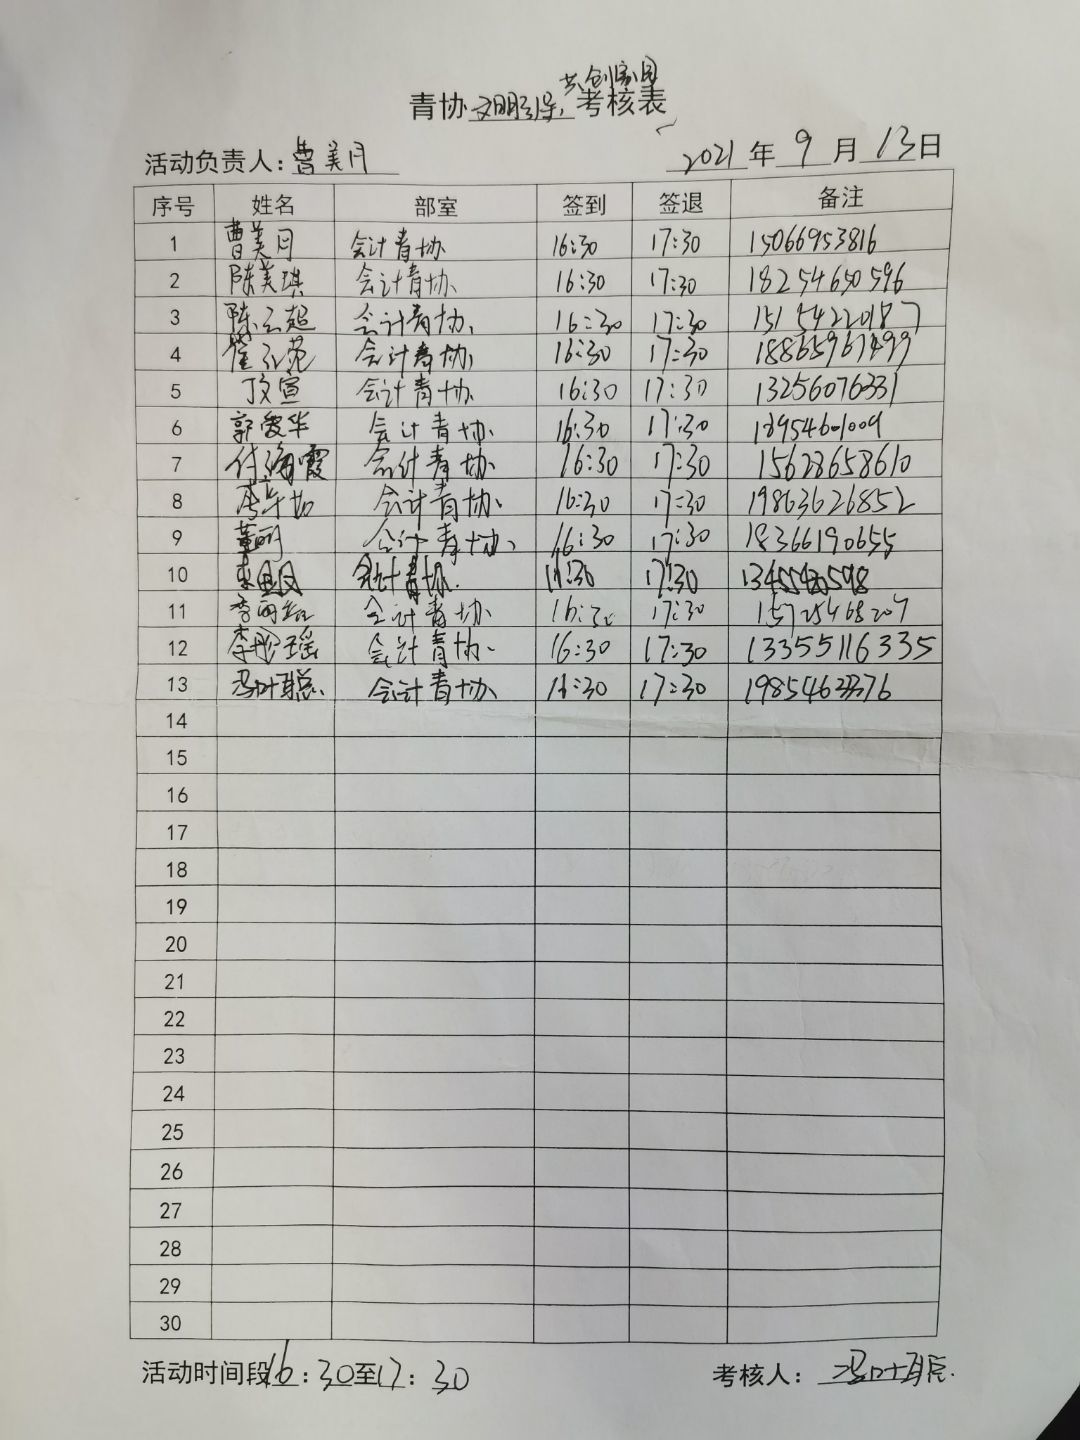 共创家园
青协文明引导,考核表
活动负责人:曹美月 2021年9月13日
序号 姓名 部室 签到 签退 备注
1 曹美月 会计青协 16:30 17:30 15066953816
2 陈美琪 会计青协 16:30 17:30 18254650596
3 陈云超 会计青协 16:30 17:30 15154220187
4 会计青协 16:30 17:30 18865967499
5 丁文宣 会计青协 16:30 17:30 13256076331
6 郭爱华 会计青协 16:30 17:30
7 付海霞 会计青协 16:30 17:30 15628658610
8 会计青协 16:30 17:30 19863626852
9 董明 会计青协 16:30 17:30 18366190655
10 会计青协 17:30
11 会计青协 17:30 15725468207
12 李彤瑶 会计青协 16:30 17:30 13355116335
13 冯叶聪 会计青协 16:30 17:30
14
15
16
17
18
19
20
21
22
23
24
25
26
27
28
29
30
活动时间段16:30至17:30 考核人:冯叶聪